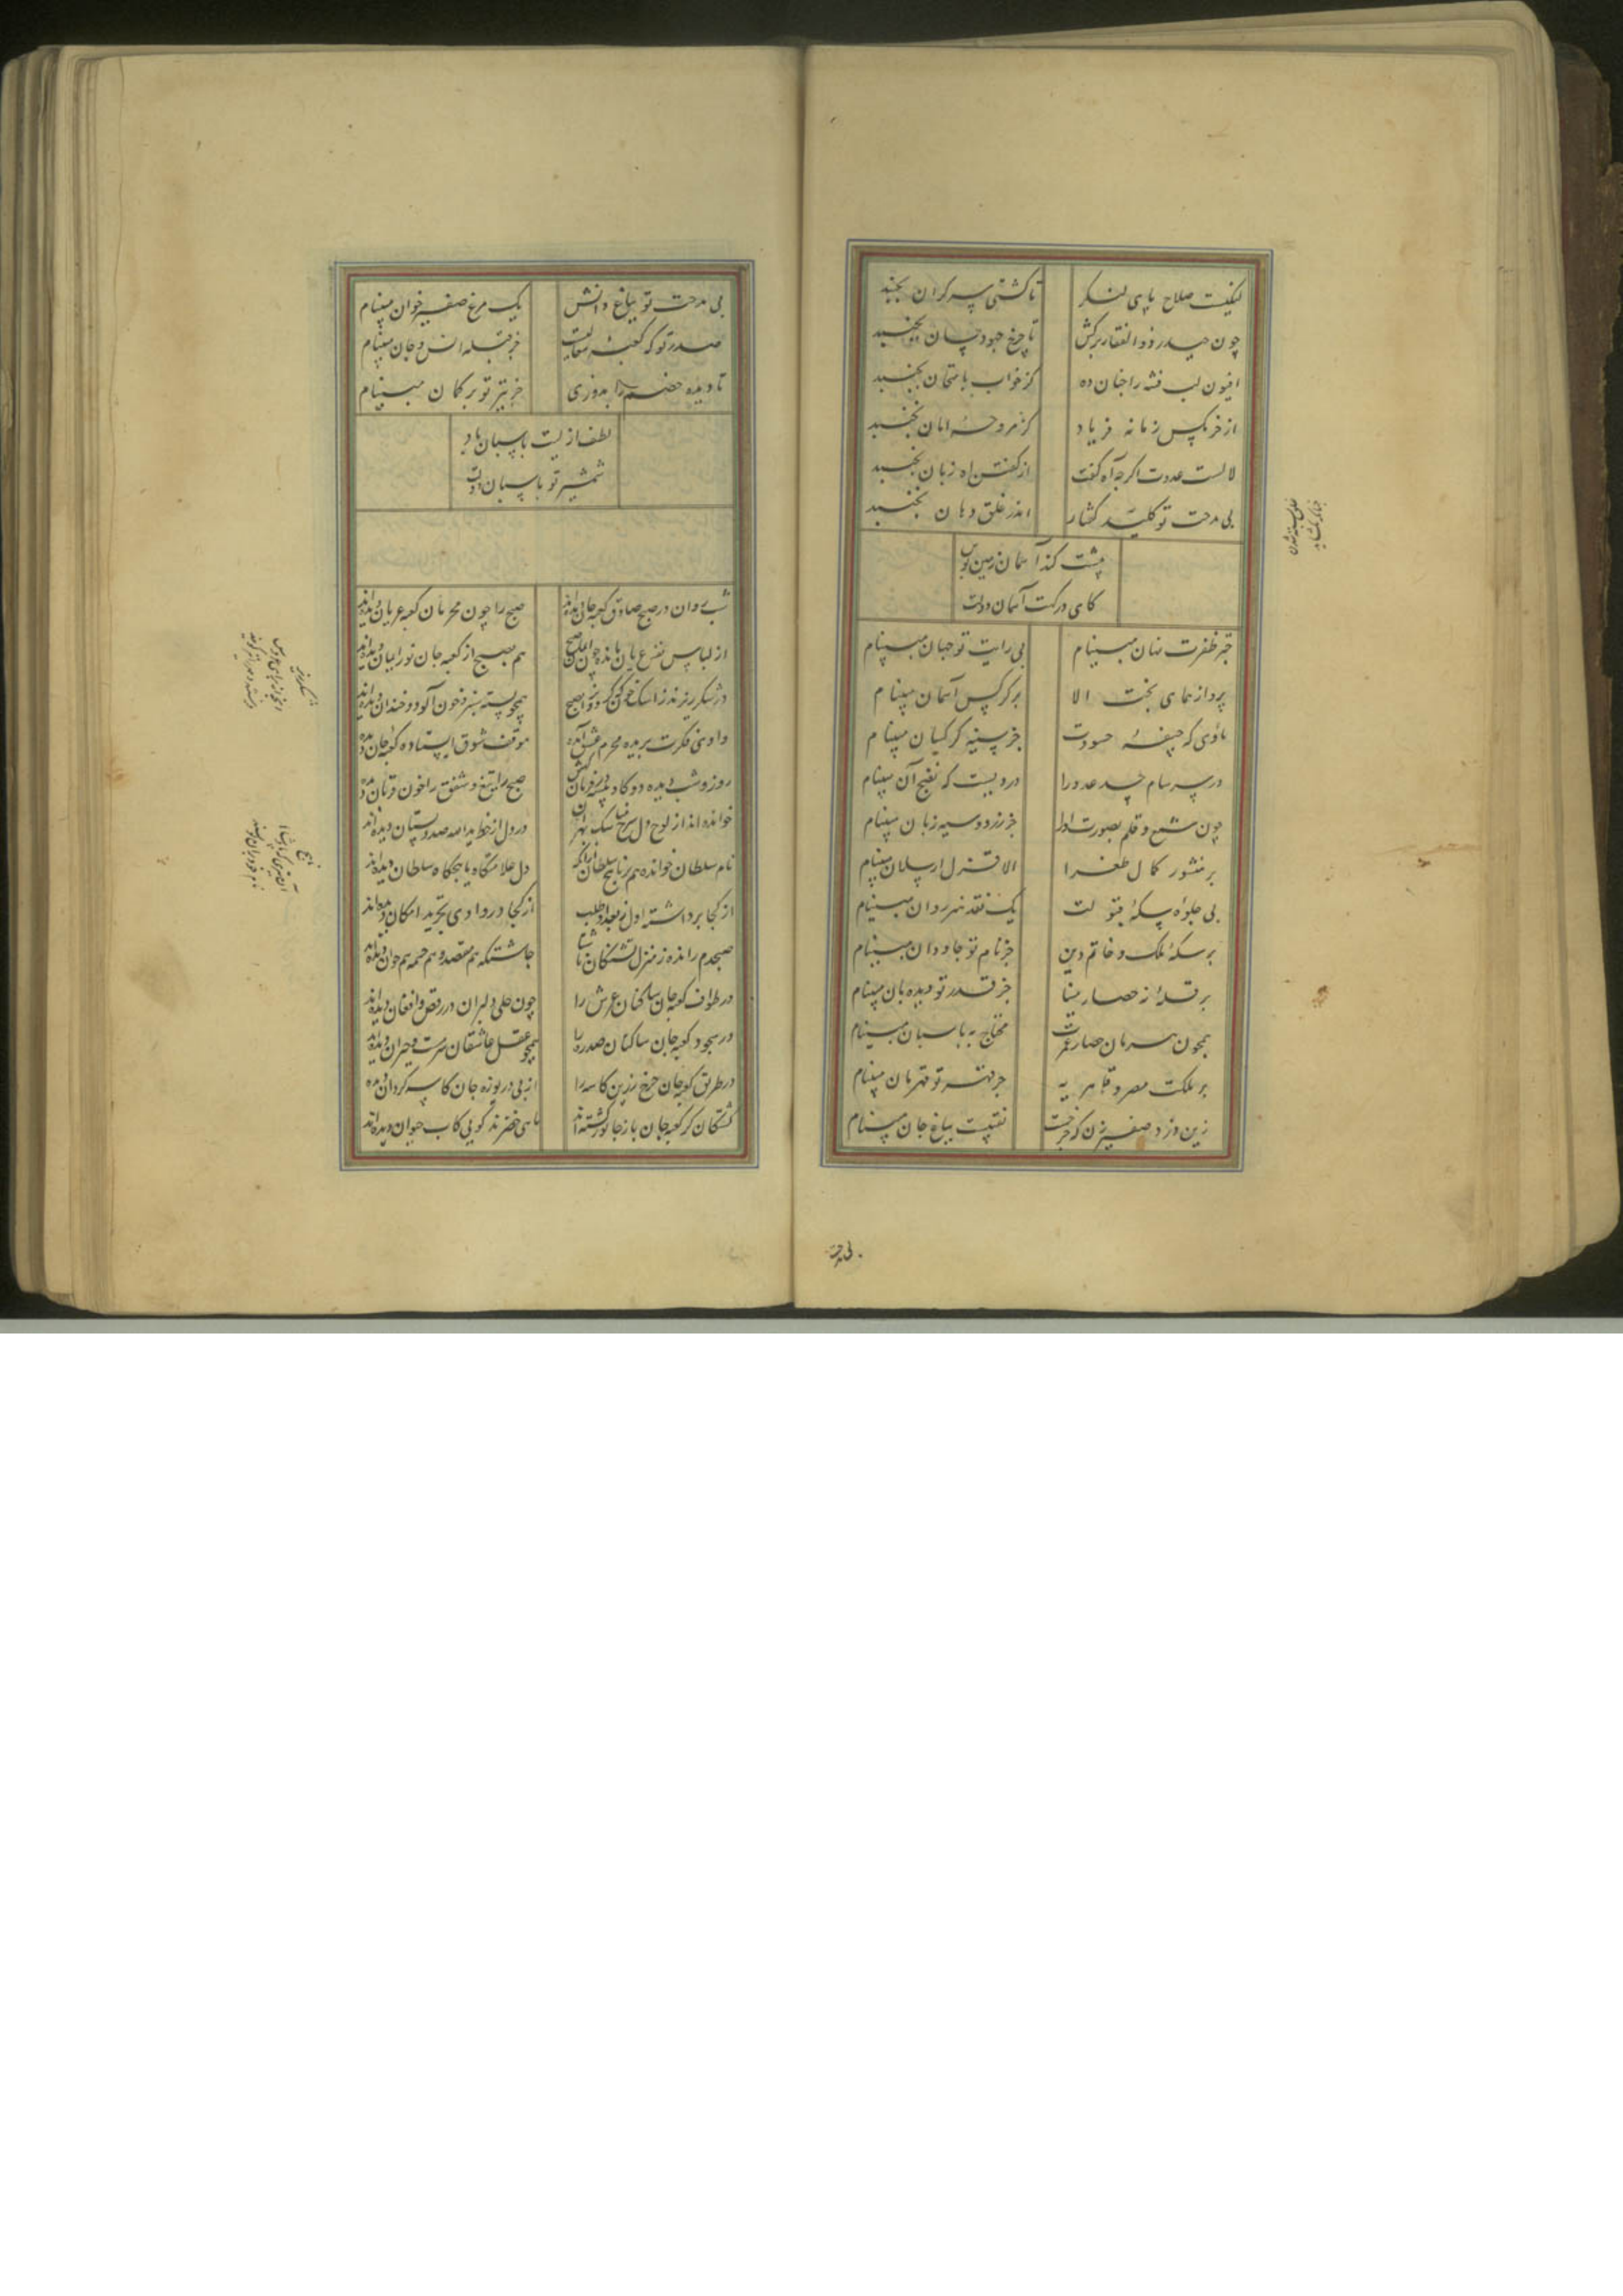 لیکنت صلاح پای لنگر
تا کشتی سر گران بجنبد
چون حیدر ذوالفقار برکش
تا چرخ جهودسان بجنبد
افیون لب فتنه را چنان ده
کز خواب بامتحان بجنبد
از خرمگس زمانه فریاد
کز مروحهٔ امان بجنبد
لالست عدوت اگرچه آه گفت
از گفتن آه زبان بجنبد
بی مدحت تو کلید گفتار
اندر غلق دهان بجنبد
پشت کند آسمان زمین بوس
کای درگهت آسمان دولت
چتر ظفرت نهان مبینام
بی رایت تو جهان مبینام
پرواز همای بخت الا
بر کرکس آسمان مبینام
ماوی که جیفهٔ حسودت
جز سینهٔ کرکسان مبینام
در سرسام حسد عدو را
دردیست که نضج آن مبینام
چون شمع و قلم بصورت او را
جز زرد و سیه زبان مبینام
بر منشور کمال طغرا
الا قزل ارسلان مبینام
بی جلوه سکهٔ قبولت
یک نقد هنر روان مبینام
بر سکهٔ ملک و خاتم دین
جز نام تو جاودان مبینام
بر قلهٔ نه حصار مینا
جز قدر تو دیده بان مبینام
همچون هرمان حصار عمرت
محتاج به پاسبان مبینام
بر مملکت مصر و قاهره
جز قهر تو قهرمان مبینام
زین دزد صفیرزن که چرخست
نقبیت بباغ جان مبینام
بی مدحت
بی مدحت تو بباغ دانش
یک مرغ صفیر خوان مبینام
صدر تو که کعبهٔ معالیست
جز قبله انس و جان مبینام
تا دیده خصم را بدوزی
جز تیر تو بر کمان مبینام
لطف ازلیت پاسبان باد
شمشیر تو پاسبان دولت
شب روان در صبح صادق کعبهٔ جان دیده‌اند
صبح را چون محرمان کعبه عریان دیده‌اند
از لباس نفس عریان مانده چون ایمان و صبح
هم بصبح از کعبه جان نور ایمان دیده‌اند
در شکرریزند ز اشک خوش که گردون را بصبح
همچو پسته سبز و خون آلود و خندان دیده‌اند
وادی فکرت بریده محرم عشق آمده
موقف شوق ایستاده کعبهٔ جان دیده
روز و شب دیده دو گاو پیسه در قربانگهش
صبح را تیغ و شفق را خون قربان دیده
خوانده‌اند از لوح دل شرح مناسک بهر آن
در دل از خط ید الله صد دبستان دیده‌اند
نام سلطان خوانده هم بر تاج سلطان زانکه
دل علامتگاه تاجگاه سلطان دیده‌اند
از کجا برداشته اول ز بغداد طلب
از کجا در وادی تجرید امکان دیده‌اند
صبحدم رانده ز منزل تشنگان ناشتا
چاشتگه هم مقصد و هم چشمه هم خوان دیده‌اند
در طواف کعبه جان ساکنان عرش را
چون حلی دلبران در رقص و افغان دیده‌اند
در سجود کعبه جان ساکنان سدره را
همچو عقل عاشقان سرمست و حیران دیده‌اند
در طریق کعبه جان چرخ زرین کاسه را
از پی دریوزه جان کاسه گردان دیده
کشتگان کز کعبه جان باز جانور گشته‌اند
ماهی خضرند گویی کاب حیوان دیده‌اند